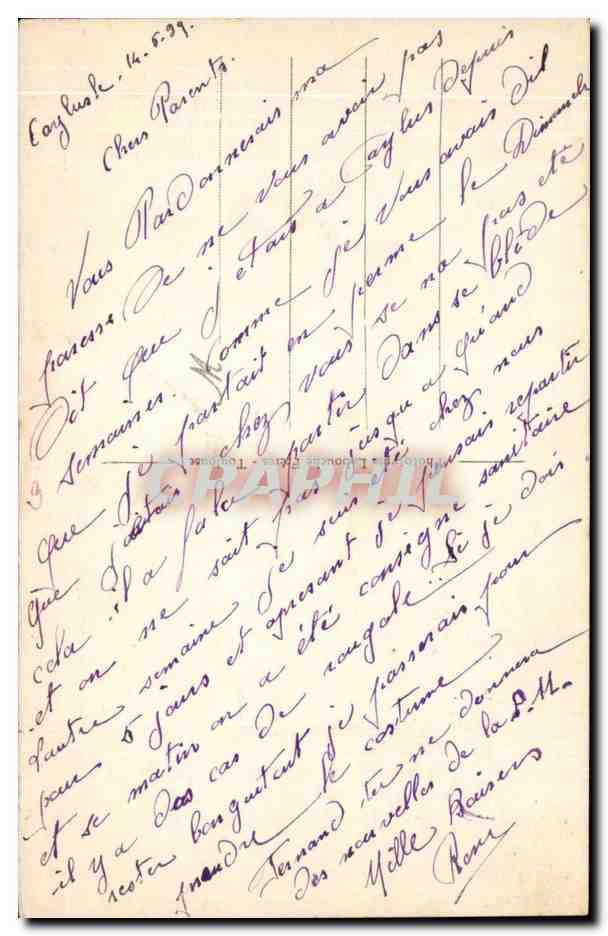 Caylus le. 14.6.39.
Chers Parents.
Vous Pardonnerais ma
paresse De ne Vous avoir pas
Dit que j'étais a Caylus Depuis
3 semaines. Momme je Vous avais dit
que je partait en perme le Dimanche
que j'étais chez vous se na pas été
cela il a falu partir dans se blède
et on ne sait pas jusqu a quand
l'autre semaine je suis été chez nous
pour 5 jours et apresant je pensais repartir
et se matin on a été consigne sanitaire
il y a des cas de rougole. Si je dois
rester longuitent je passerais pour
prendre le costume
Fernand tu me donnera
des nouvelles de la P.M.
Mille Baisers
René
Labouche Frères, Toulouse
CPAPHIL